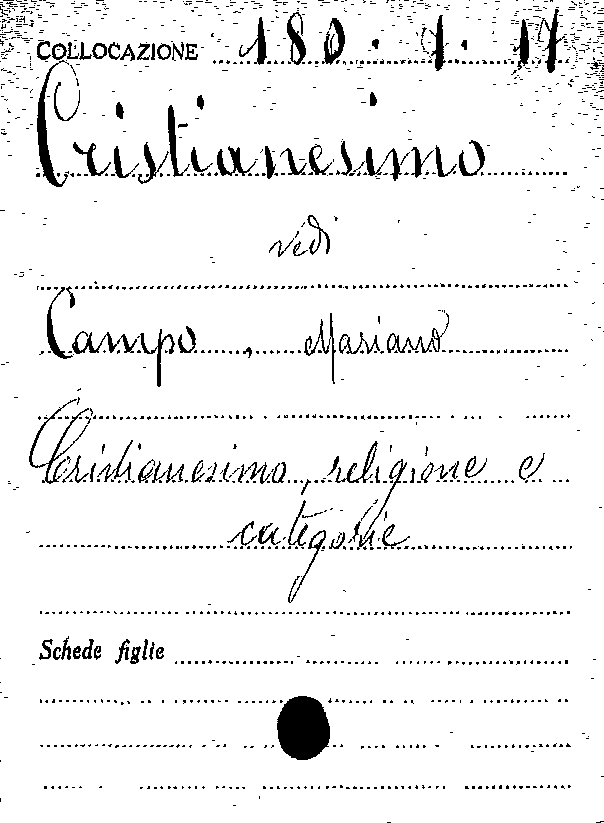 COLLOCAZIONE 180.7.17
Cristianesimo
vedi
Campo, Mariano
Cristianesimo, religione e
categorie
Schede figlie